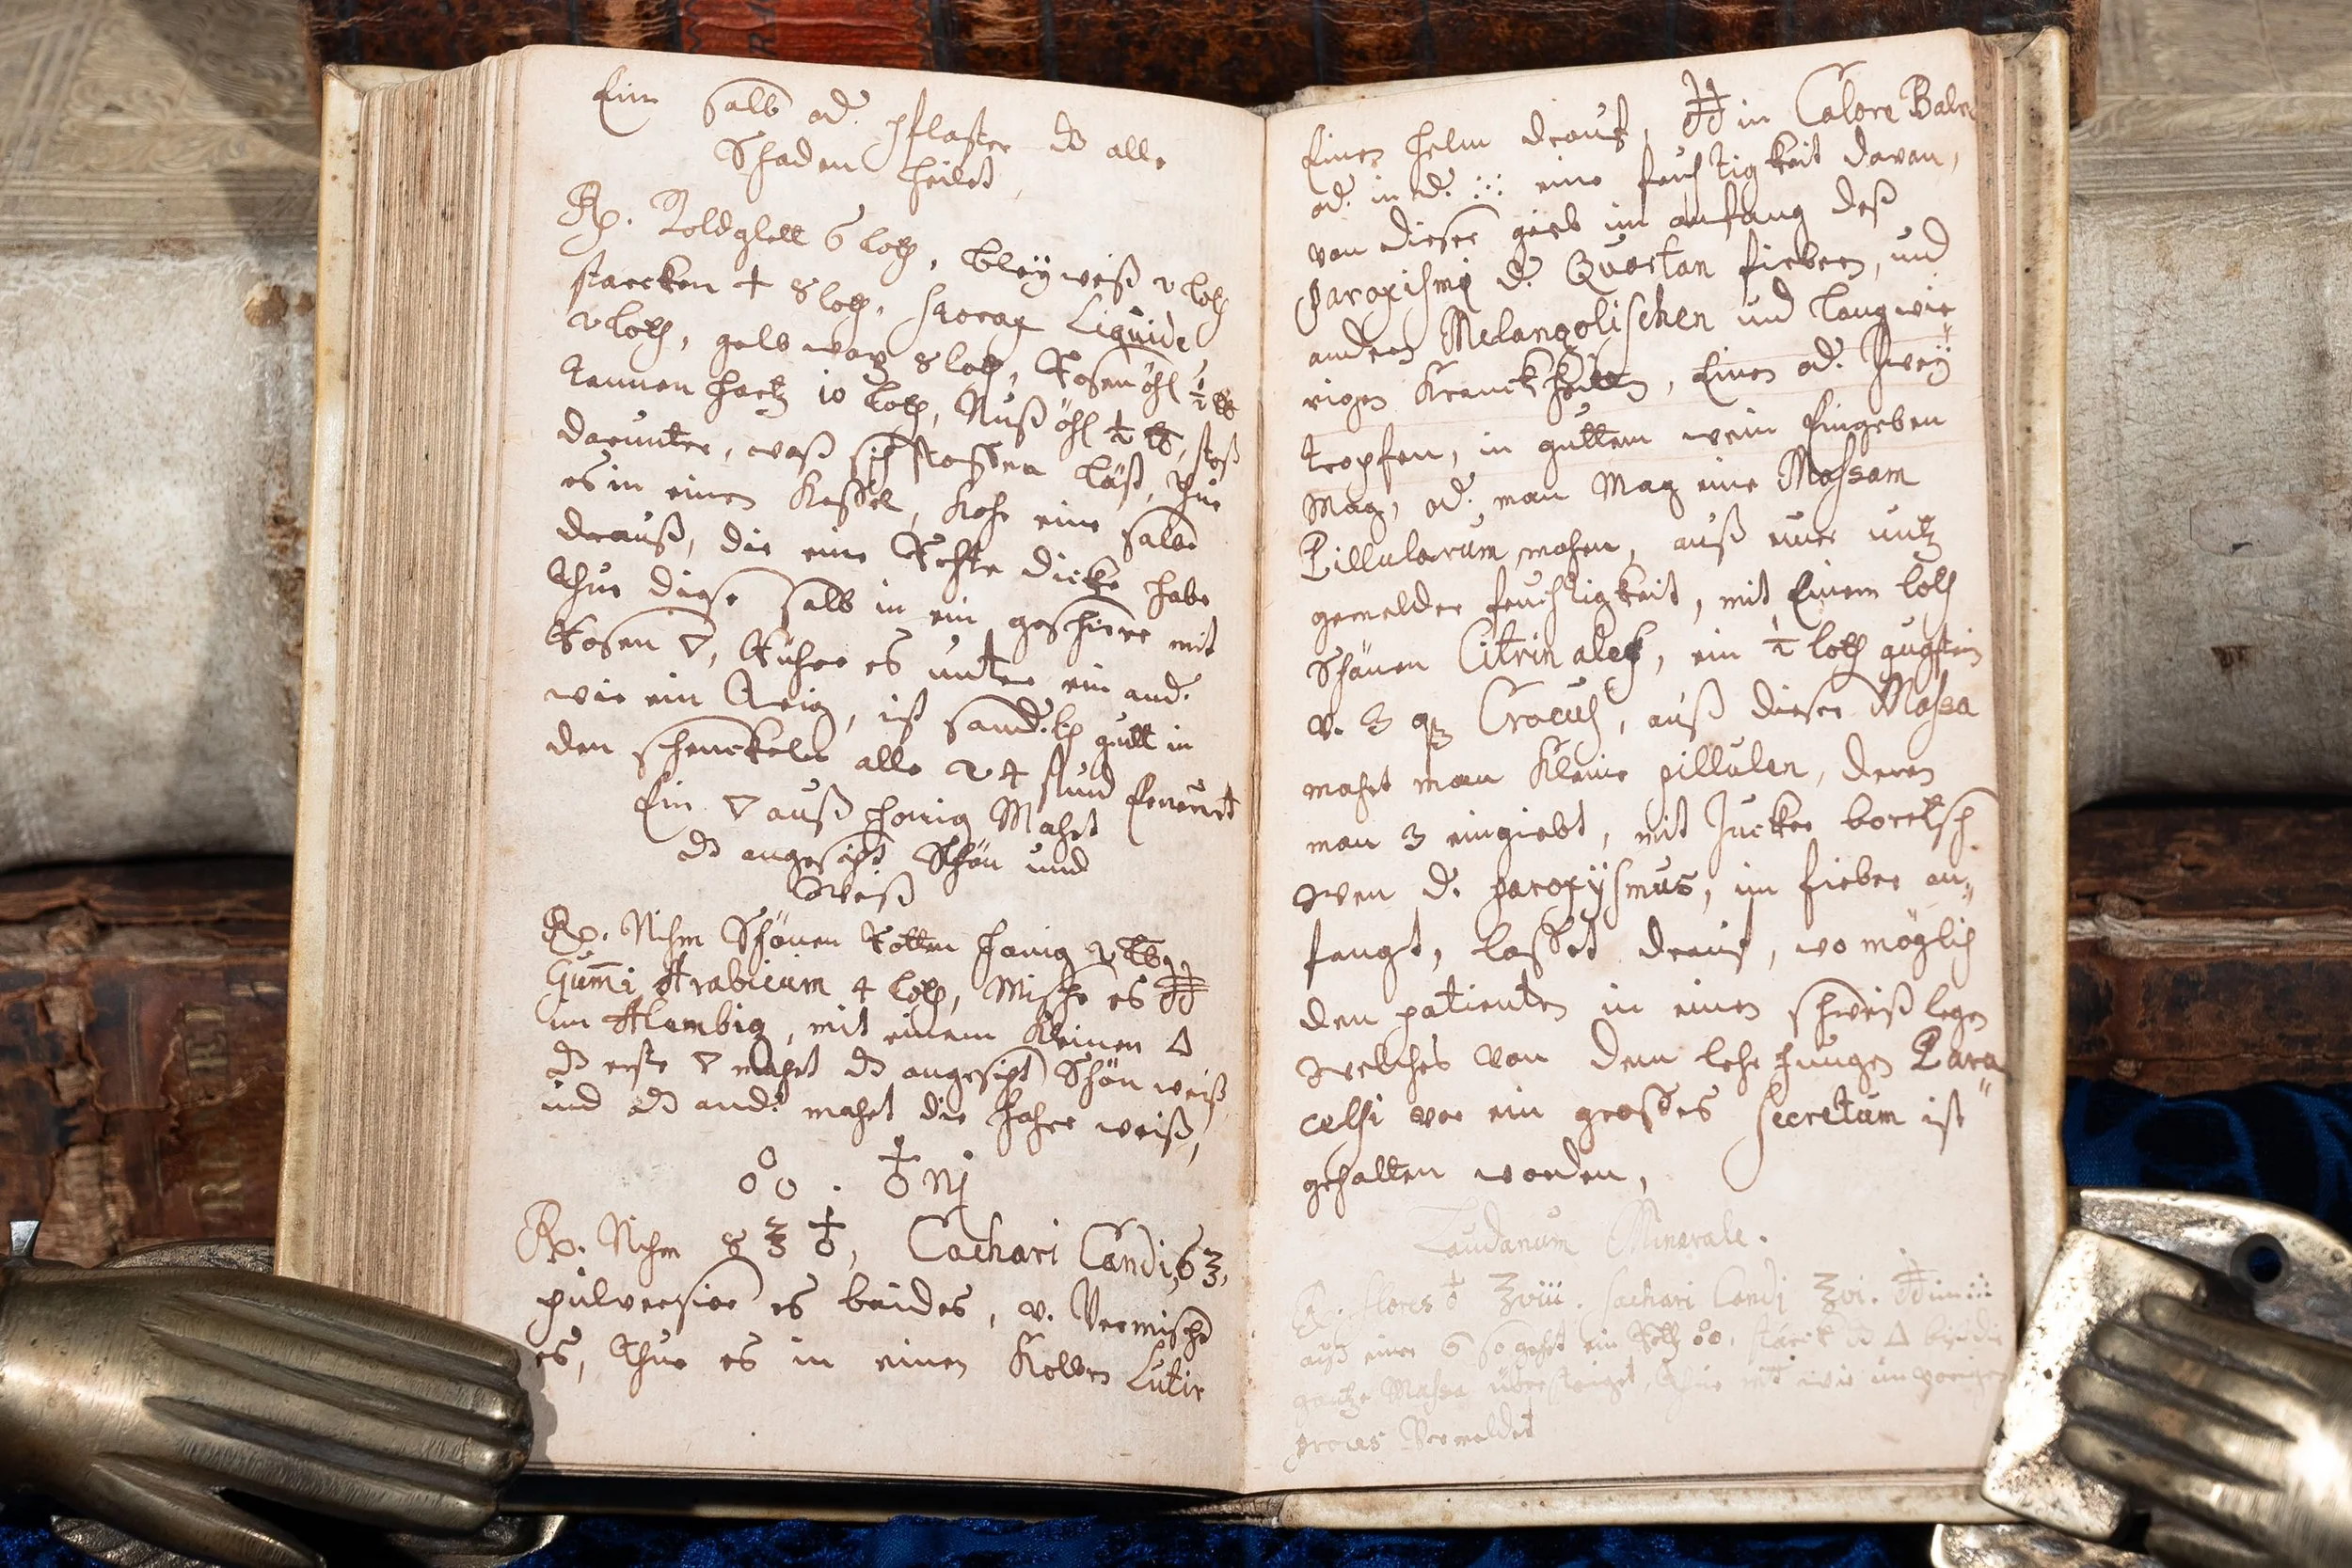 Ein Salb od. pflaster dz alle
Schaden heilet,
Rp. Goldglett 6 loth, bleÿweiß 2 loth
starcken + 8 loth, storax Liquide
2 loth, gelb wax 8 loth, Rosen öhl ½ lb
tannen hartz 10 loth, Nuß öhl ½ lb, stoß
darunter, waß sich stossen läst, thue
es in einen Kessel, Koch eine salbe
drauß, die eine Rechte dicke habe
thue diese salb in ein geschirr mit
Rosen ▽, Rühre es unter ein and.
wie ein teig, ist sond.lh gutt in
den schenckeln alle 24 stund Erneurt
Ein ▽ auß honig Macht
dz angesicht Schön und
Weiß
Rp. Nihm Schönen Rotten honig 2 lb,
Gum̄i Arabicum 4 loth, Mische es
im Alembig, mit einem Kleinen △
dz erste ▽ macht dz angesicht Schön weiß,
und dz and. macht die Hahre weiß,
o°o . ♁ Nj
Rp. Nihm 8 ℥ ♁, Cachari Candi, 6 ℥,
pulverisire es beides, v. Vermische
es, thue es in einen Kolben Lutir
Einen helm drauf, in Calore Balne
od. in d. ∴ eine feuchtigkeit davon,
von dieser gieb im anfang deß
paroxismi d. Quartan fiebern, und
andern Melancolischen und langwie
rigen Kranckheiten, Einen od. Zweÿ
tropfen, in guttem wein Eingeben
Mag, od. man Mag eine Massam
Pillularum machen, auß iner
gemelder feuchtigkeit, mit Einem loth
Schönen Citrin aloes, ein ½ loth
v. 3 Crocus, auß dieser Massa
macht man Kleine pillulen, deren
man 3 eingiebt, mit Zucker boretsch
Wen d. paroxÿsmus, im fieber an
fangt, lasset drauf, wo möglich
den patienten in einen schweiß legen
Welches Von dem lehr Jungen Para
celsi vor ein grosses Secretum ist
gehalten worden,
Laudanum Minerale.
Rp. flores ♁ ℥viii. Sachari Candj ℥vi. im
auß einer so gehet ein Roth o°o, stärck dz △ biß die
gantze Massa übersteiget, thue mit wie im vorigen
Vermeldet